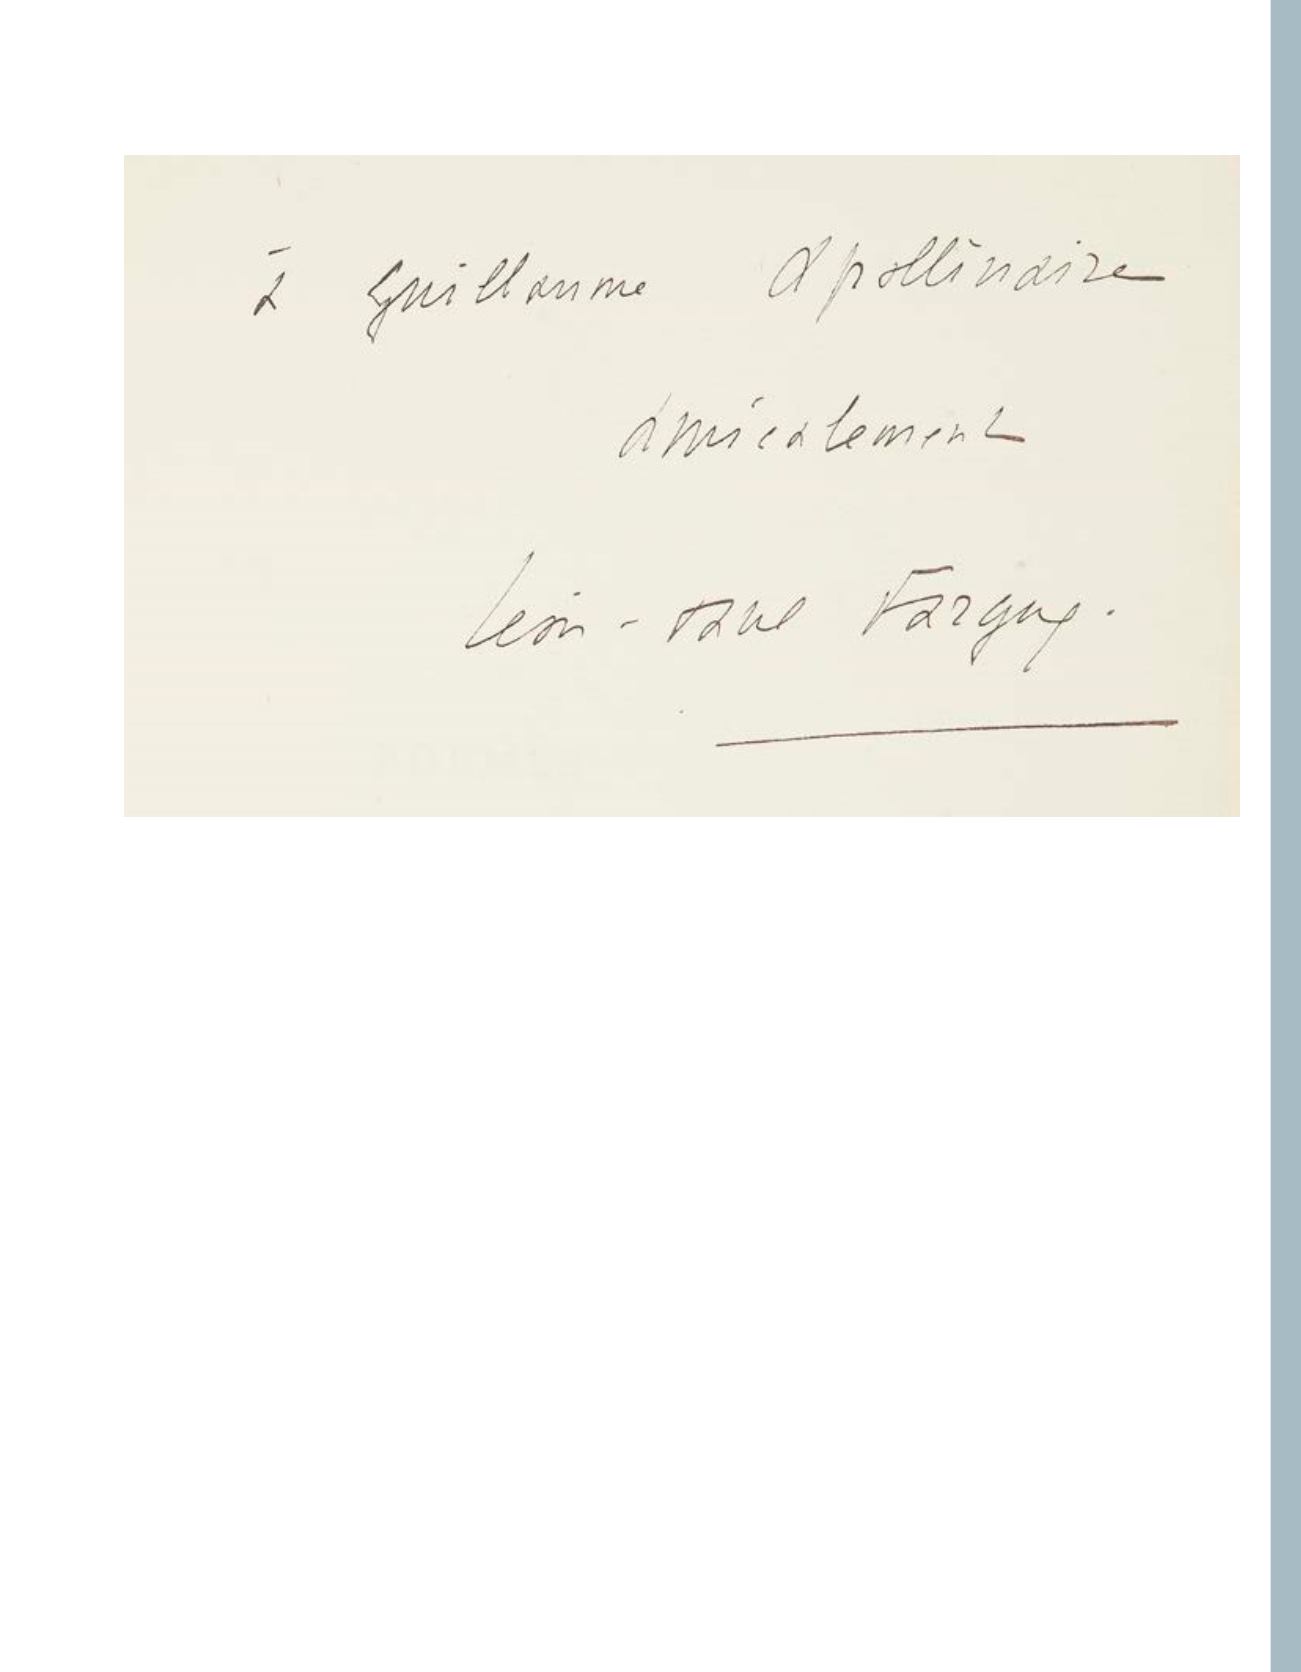 à Guillaume Apollinaire
amicalement
Léon-Paul Fargue.